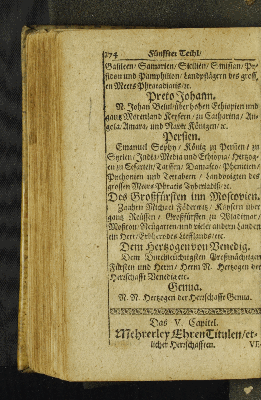 274 Fünffter Teihl/
Galileen/ Samarien/ Sicilien/ Smisian/ Py-
sidon und Pamphilion/ Landpflägern des gross
en Meers
Preto Johann.
N. Johan Beul über hohen Ethiopien und
gantz Morenland Keysern/ zu Catharina/ An-
gela/ Amara/ und Königen/ ꝛc.
Persien.
Emanuel Sephy/ König zu Persien/ zu
Syrien/ Indei/ Media und Ethiopia/ Hertzog-
en zu Tarssen/ Damasko/
und Tartabern/ Landvögten des
grossen Meirs
Des Großfürsten inn Moscovien.
Zaaren Michael Föderwitz/ Keysern über
gantz Reussen/ Großfürsten zu Wladimar/
Moskou/ Neugarten und vieler andern Landen
ein Herr/
Dem Hertzogen von Venedig.
Dem Durchleuchtigsten Großmächtigen
Fürsten und Herrn/ Herrn N. Hertzogen der
Herrschafft Venedig etc.
Genua.
N. N. Hertzogen der Herrschafft Genua.
Das V. Capitel.
Mehrerley Ehren Titulen/ et-
licher Herrschafften.
VE-